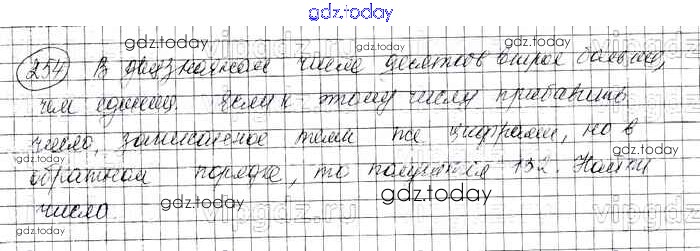 gdz.today
254 В двузначном числе десятков втрое больше,
gdz.today gdz.today
чем единиц. Если к этому числу прибавить
число, записанное теми же цифрами, но в
gdz.today gdz.today
обратном порядке, то получится 132. Найти
gdz.today
число.
gdz.today gdz.today
gdz.today